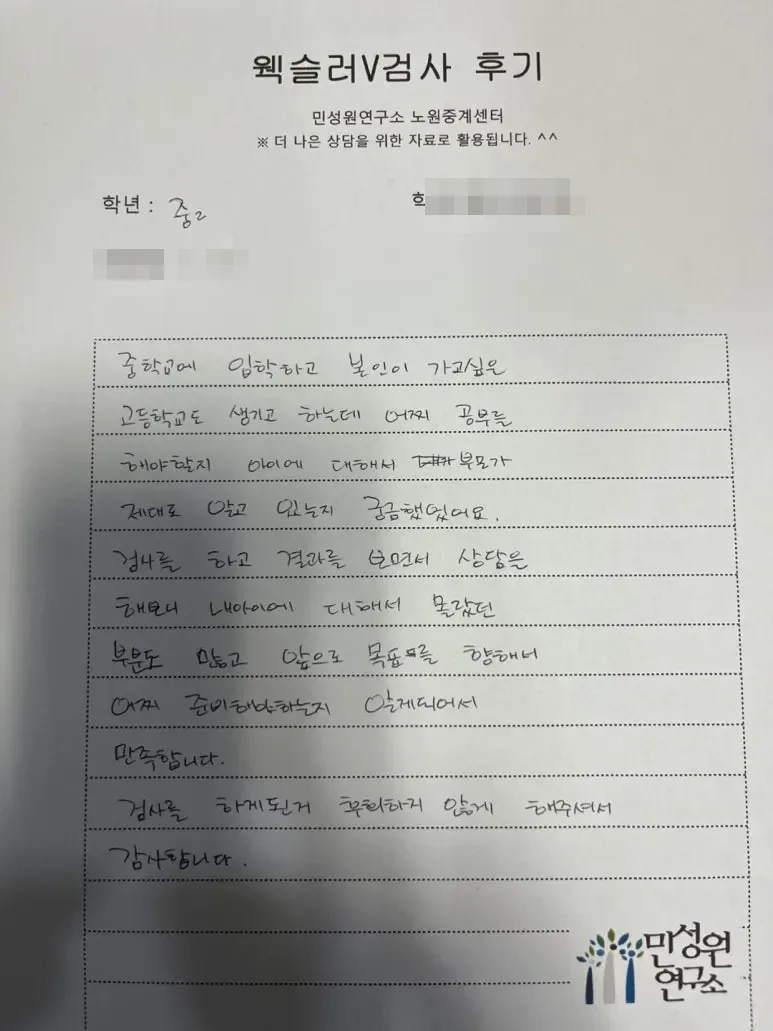 웩슬러V검사 후기
민성원연구소 노원중계센터
※ 더 나은 상담을 위한 자료로 활용됩니다. ^^
학년 : 중2
학
중학교에 입학하고 본인이 가고싶은
고등학교도 생기고 하는데 어찌 공부를
해야할지 아이에 대해서 부모가
제대로 알고 있는지 궁금했었어요.
검사를 하고 결과를 보면서 상담을
해보니 내아이에 대해서 몰랐던
부분도 많고 앞으로 목표를 향해서
어찌 준비해야하는지 알게되어서
만족합니다.
검사를 하게된거 후회하지 않게 해주셔서
감사합니다.
민성원
연구소